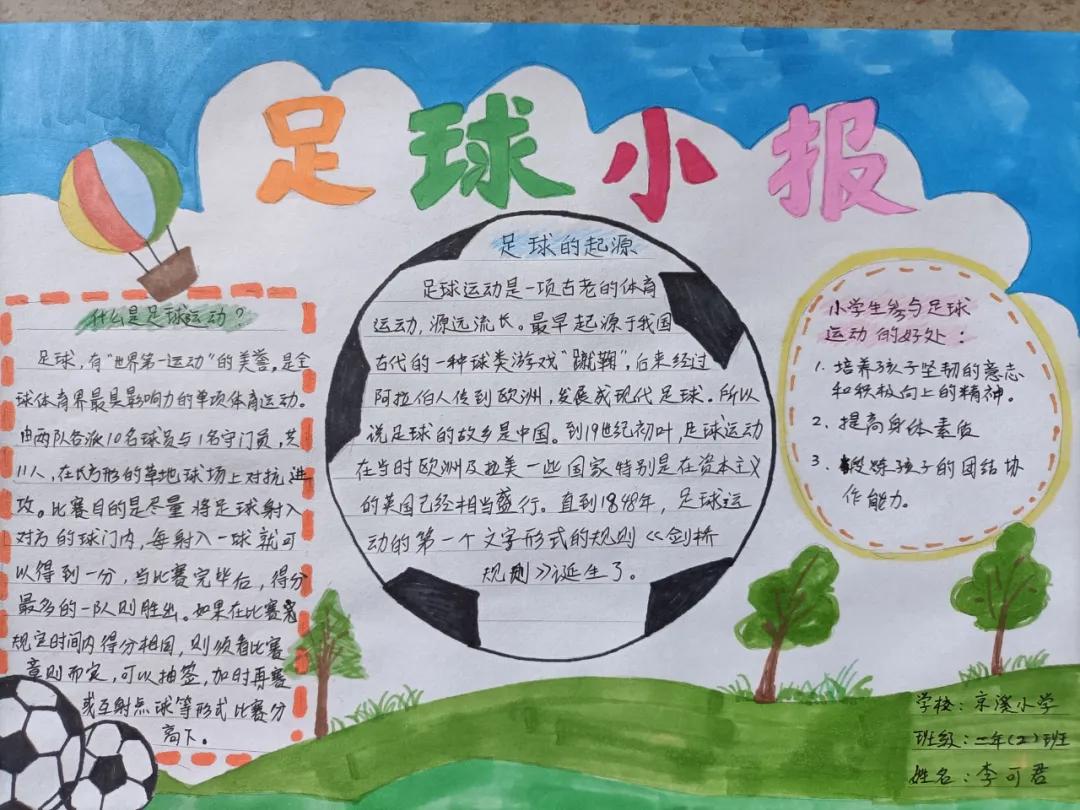 足球小报
什么是足球运动？
足球，有“世界第一运动”的美誉，是全
球体育界最具影响力的单项体育运动。
由两队各派10名球员与1名守门员，共
11人，在长方形的草地球场上对抗、进
攻。比赛目的是尽量将足球射入
对方的球门内，每射入一球就可
以得到一分，当比赛完毕后，得分
最多的一队则胜出。如果在比赛
规定时间内得分相同，则须看比赛
章则而定，可以抽签，加时再赛
或互射点球等形式比赛分
高下。
足球的起源
足球运动是一项古老的体育
运动，源远流长。最早起源于我国
古代的一种球类游戏“蹴鞠”，后来经过
阿拉伯人传到欧洲，发展成现代足球。所以
说足球的故乡是中国。到19世纪初叶，足球运动
在当时欧洲及拉美一些国家特别是在资本主义
的英国已经相当盛行。直到1848年，足球运
动的第一个文字形式的规则《剑桥
规则》诞生了。
小学生参与足球
运动的好处：
1. 培养孩子坚韧的意志
和积极向上的精神。
2. 提高身体素质
3. 锻炼孩子的团结协
作能力。
学校：京溪小学
班级：二年(2)班
姓名：李可君